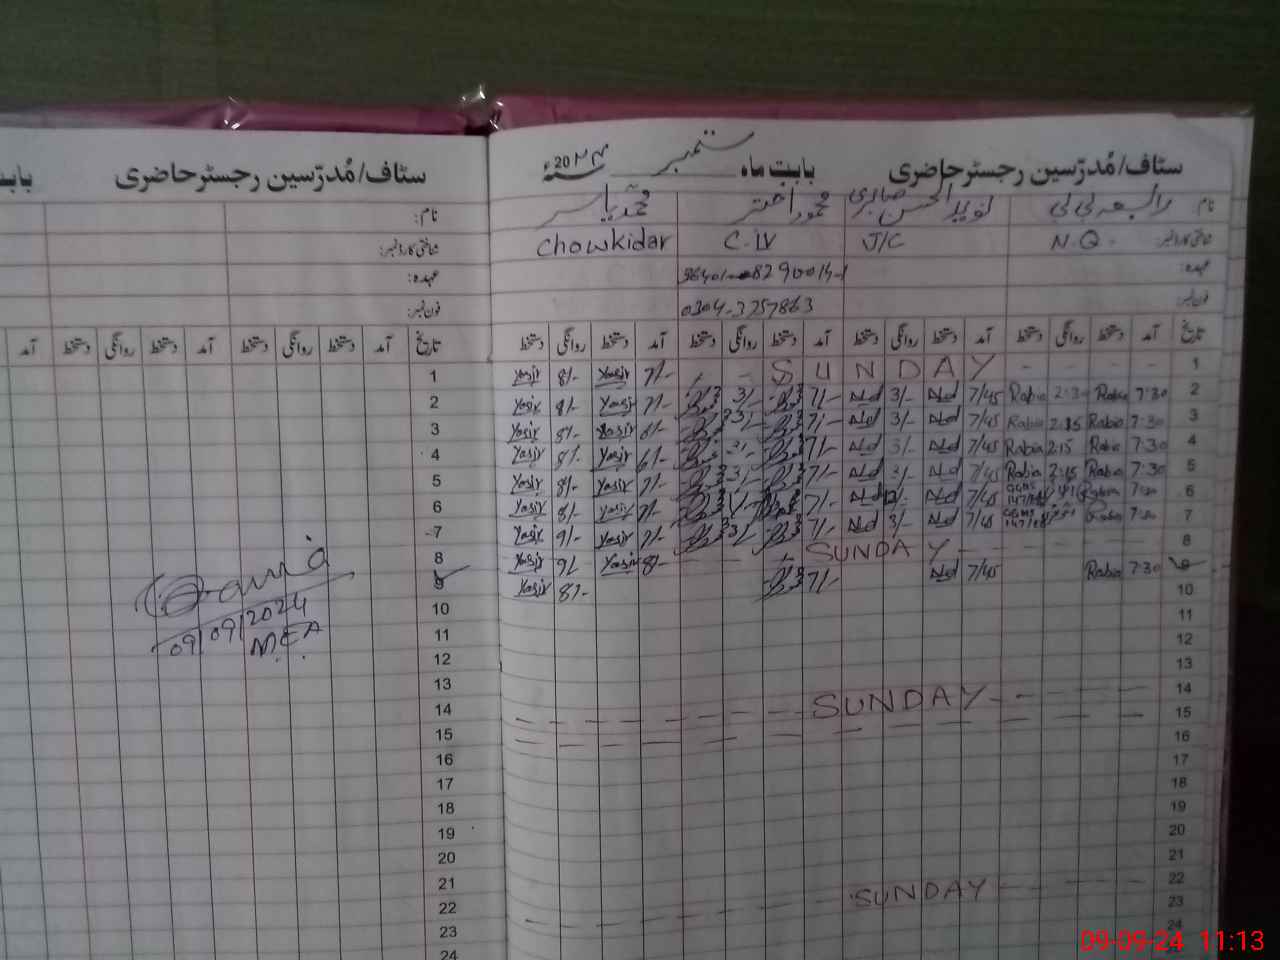 سٹاف/مُدرّسین رجسٹر حاضری بابت ماہ ستمبر 20۲۴ سنۂ
نام: رابعہ بی بی نوید الحسن صابری محمود اختر محمد یاسر
شناختی کارڈ نمبر: N.Q. J/C C.IV Chowkidar
عہدہ: 36401-8290014-1
فون نمبر: 0304-3757863
تاریخ آمد دستخط روانگی دستخط آمد دستخط روانگی دستخط آمد دستخط روانگی دستخط آمد دستخط روانگی دستخط
1 SUNDAY 7/- Yasir 8/- Yasir
2 7:30 Rabia 2:30 Rabia 7/45 3/- 7/- 3/- 7/- Yasir 8/- Yasir
3 7:30 Rabia 2:15 Rabia 7/45 3/- 7/- 3/- 6/- Yasir 8/- Yasir
4 7:30 Rabia 2:15 Rabia 7/45 3/- 7/- 3/- 6/- Yasir 8/- Yasir
5 7:30 Rabia 2:15 Rabia 7/45 3/- 7/- 3/- 7/- Yasir 8/- Yasir
6 7:30 Rabia 7/45 12/- 7/- 7/- Yasir 8/- Yasir
7 7:30 Rabia 7/45 3/- 7/- 3/- 7/- Yasir 9/- Yasir
8 SUNDAY 8/- Yasir 9/- Yasir
9 7:30 Rabia 7/45 7/- 8/- Yasir
10
11
12
13
14 SUNDAY
15
16
17
18
19
20
21
22 SUNDAY
23
24
سٹاف/مُدرّسین رجسٹر حاضری
نام:
شناختی کارڈ نمبر:
عہدہ:
فون نمبر:
تاریخ آمد دستخط روانگی دستخط آمد دستخط روانگی دستخط آمد
1
2
3
4
5
6
7
8
9
10
11
12
13
14
15
16
17
18
19
20
21
22
23
24
09/09/2024
M.E.A
09-09-24 11:13